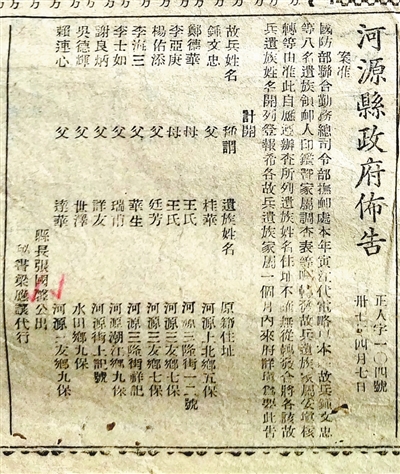 河源縣政府佈告
正人字一〇四號
卅七年四月七日
案准
國防部聯合勤務總司令部撫卹處本年寅江代電略開本故兵鍾文忠
等八名遺族領卹人印鑑暨家屬調查表等轉發故兵遺族家屬核
轉等由准此自應遵辦查所列遺族姓名住址不詳無從轉發合將各該故
兵遺族姓名開列登報希各故兵遺族家屬一個月內來府詳爲要此告
計開
故兵姓名 稱謂 遺族姓名 原籍住址
鍾文忠 父 桂華 河源上北鄉五保
鄭德華 母 王氏 河源三隆街一二號
李亞庚 母 王氏 河源三友鄉七保
楊佑添 父 廷芳 河源三友鄉七保
李海三 父 華生 河源三隆街祥記
李士如 父 瑞甫 河源潮江鄉九保
謝良炳 父 詳友 河源街上記號
吳德輝 父 世澤 水田鄉九保
賴連心 父 達華 河源三友鄉九保
縣長張國公出
秘書梁應謀代行